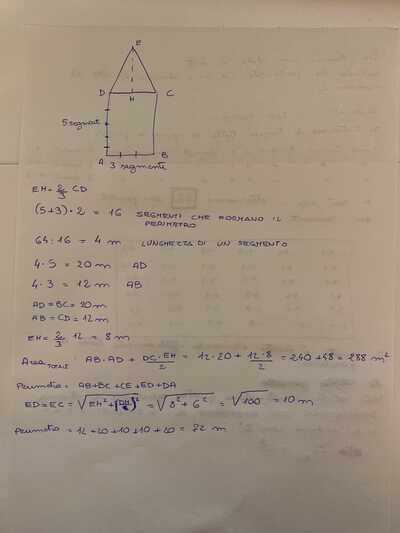 E
D
H
C
5 segmenti
A
B
3 segmenti
EH = 2/3 CD
(5+3)·2 = 16 SEGMENTI CHE FORMANO IL
PERIMETRO
64:16 = 4 m LUNGHEZZA DI UN SEGMENTO
4·5 = 20 m AD
4·3 = 12 m AB
AD = BC = 20m
AB = CD = 12m
EH = 2/3 12 = 8 m
Area TOTALE : AB·AD + DC·EH/2 = 12·20 + 12·8/2 = 240+48 = 288 m²
Perimetro = AB+BC+CE+ED+DA
ED=EC = √EH²+(DH)² = √8²+6² = √100 = 10 m
Perimetro = 12+20+10+10+20 = 82 m